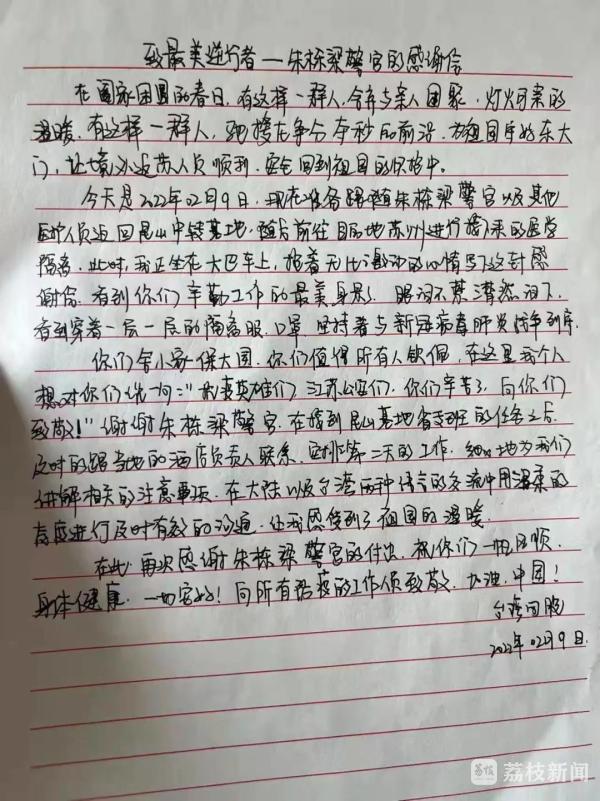 致最美逆行者一朱栋梁警官的感谢信
在阖家团圆的春日,有这样一群人,舍弃与亲人团聚,灯火可亲的
温暖,有这样一群人,驰援在争分夺秒的前沿,为祖国守好东大
门,让境外返苏人员顺利,安全回到祖国的怀抱中。
今天是2022年02月9日,现在准备跟随朱栋梁警官以及其他
医护人员返回昆山中转基地,随后前往目的地苏州进行接下来的医学
隔离,此时,我正坐在大巴车上,抱着无比激动的心情写下这封感
谢信,看到你们辛勤工作的最美身影,眼泪不禁潸然泪下,
看到穿着一层一层的隔离服、口罩 坚持着与新冠病毒肺炎战争到底
你们舍小家,保大国,你们值得所有人钦佩,在这里我个人
想对你们说一句:"我爱英雄们,江苏公安们,你们辛苦了,向你们
致敬!"谢谢朱栋梁警官,在接到昆山基地省专班的任务之后,
及时的跟当地的酒店负责人联系,安排第二天的工作,细心地为我们
讲解相关的注意事项,在大陆以及台湾两种语言的交流中用温柔的
态度进行及时有效的沟通,让我感受到了祖国的温暖,
在此,再次感谢朱栋梁警官的付出,祝你们一帆风顺,
身体健康,一切安好!向所有防疫的工作人员致敬,加油,中国!
台湾同胞
2022年02月9日
荔枝 荔枝新闻